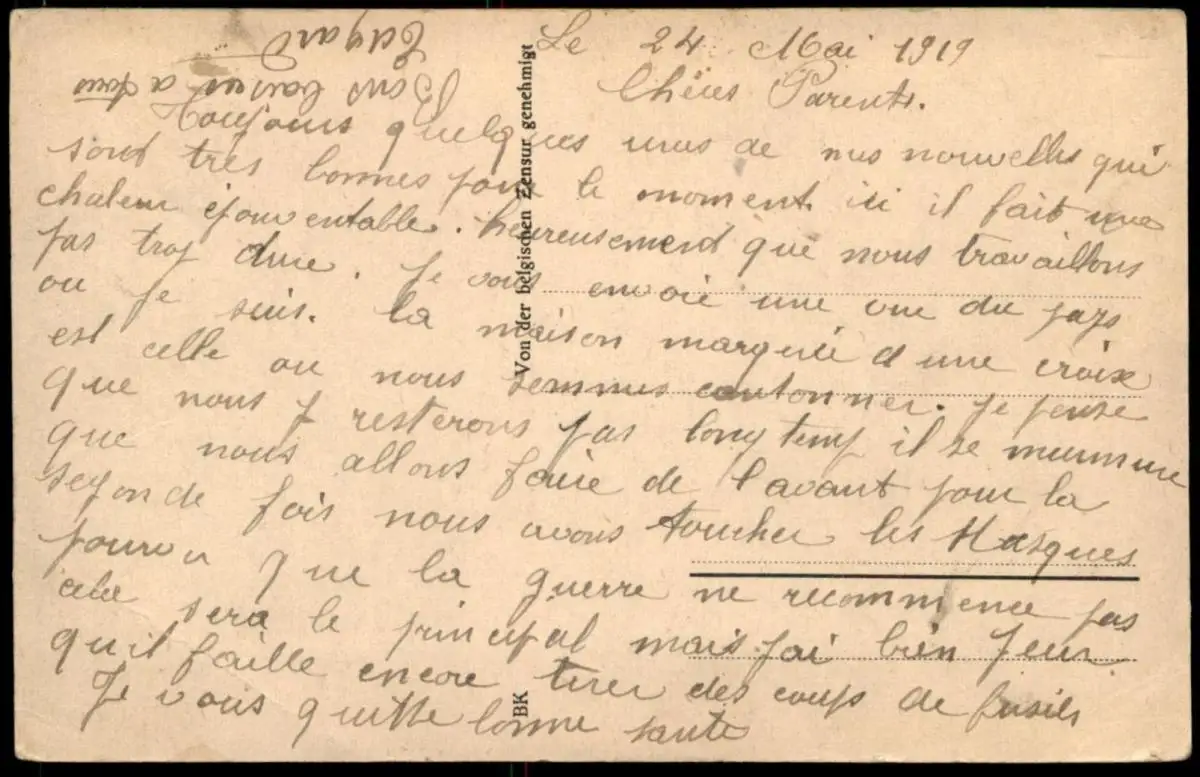 Le 24 Mai 1919
Chères Parents.
Toujours quelques unes de nus nouvelles qui
sont très bonnes pour le moment. ici il fait une
chaleur épouventable. heureusement que nous travaillons
pas trop dure. Je vous envoie une vue du pays
ou je suis. la maison marquée d une croix
est celle ou nous sommes cantonner. Je pense
que nous y resterons pas longtemp il se murmure
que nous allons faire de lavant pour la
segonde fois nous avons toucher les Masques
pourvu que la guerre ne recommence pas
cela sera le principal mais jai bien peur
quil faille encore tirer des coups de fusils
Je vous quitte bonne sante
Bons baisers a tous
Edgard
Von der belgischen Zensur genehmigt
BK